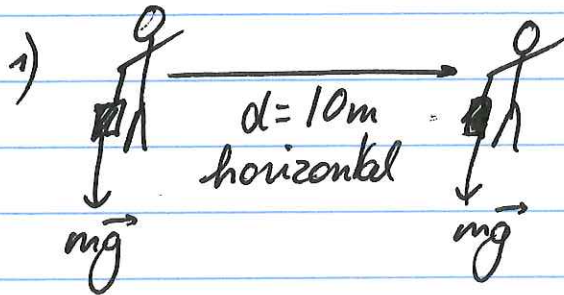 1)
d = 10m
horizontal
mg⃗
mg⃗